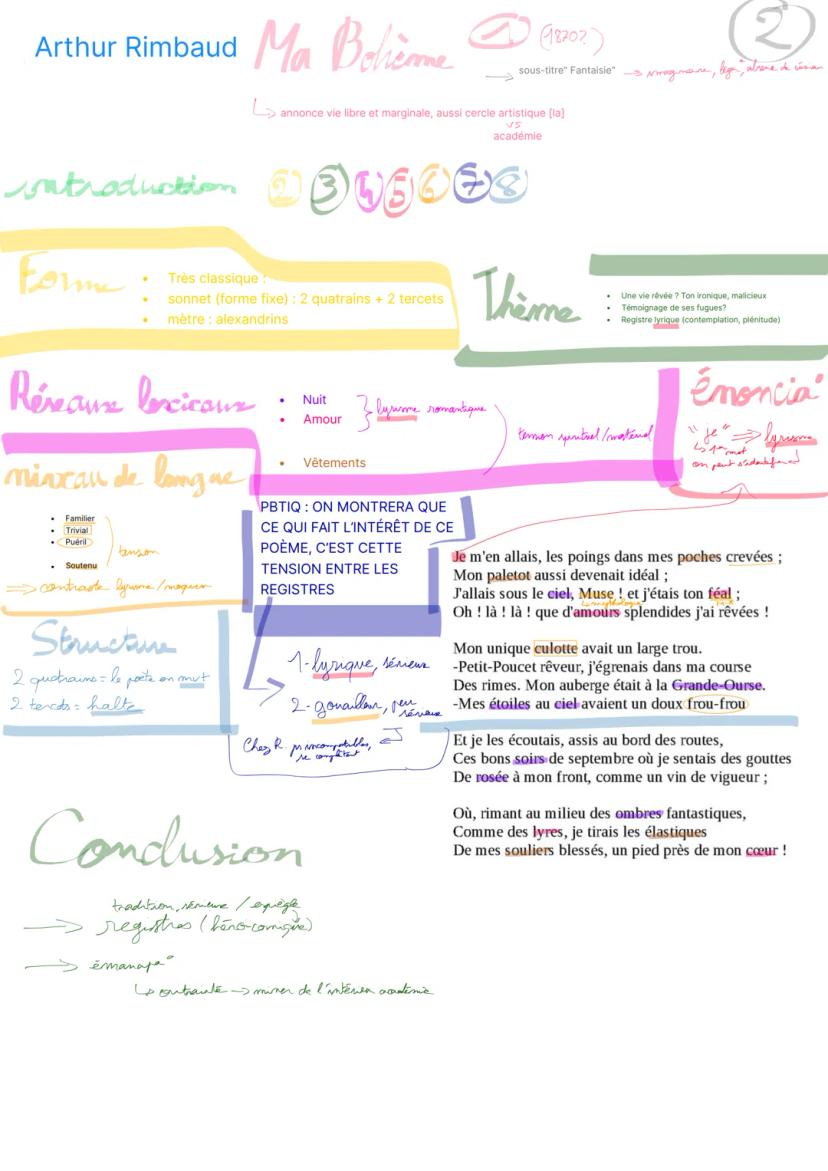 Arthur Rimbaud
Ma Bohème
1 (1870?)
2
sous-titre" Fantaisie"
→ imaginaire,
↳ annonce vie libre et marginale, aussi cercle artistique [la]
vs
académie
introduction 2 3 4 5 6 7 8
Forme
• Très classique :
• sonnet (forme fixe) : 2 quatrains + 2 tercets
• mètre : alexandrins
Thème
• Une vie rêvée ? Ton ironique, malicieux
• Témoignage de ses fugues?
• Registre lyrique (contemplation, plénitude)
Réseaux lexicaux
• Nuit
• Amour
lyrisme romantique
• Vêtements
tension spirituel/matériel
Énoncia°
"je" ⇒ lyrisme
↳ 1er mot
on peut s'identifier
niveau de langue
• Familier
• Trivial
• Puéril
• Soutenu
tension
⇒ contraste lyrisme/moqueur
PBTIQ : ON MONTRERA QUE
CE QUI FAIT L'INTÉRÊT DE CE
POÈME, C'EST CETTE
TENSION ENTRE LES
REGISTRES
Structure
2 quatrains = le poète en mvt
2 tercets = halte
1- lyrique, sérieux
2- gouailleur, peu
sérieux
Chez R. pr incompatibles,
se complètent
Je m'en allais, les poings dans mes poches crevées ;
Mon paletot aussi devenait idéal ;
J'allais sous le ciel, Muse ! et j'étais ton féal ;
↳ mythologie
Oh ! là ! là ! que d'amours splendides j'ai rêvées !
Mon unique culotte avait un large trou.
-Petit-Poucet rêveur, j'égrenais dans ma course
Des rimes. Mon auberge était à la Grande-Ourse.
-Mes étoiles au ciel avaient un doux frou-frou
Et je les écoutais, assis au bord des routes,
Ces bons soirs de septembre où je sentais des gouttes
De rosée à mon front, comme un vin de vigueur ;
Où, rimant au milieu des ombres fantastiques,
Comme des lyres, je tirais les élastiques
De mes souliers blessés, un pied près de mon cœur !
Conclusion
tradition, sérieux / espiègle
→ registres (héro-comique)
→ émancipa°
↳ → miner de l'intérieur académie